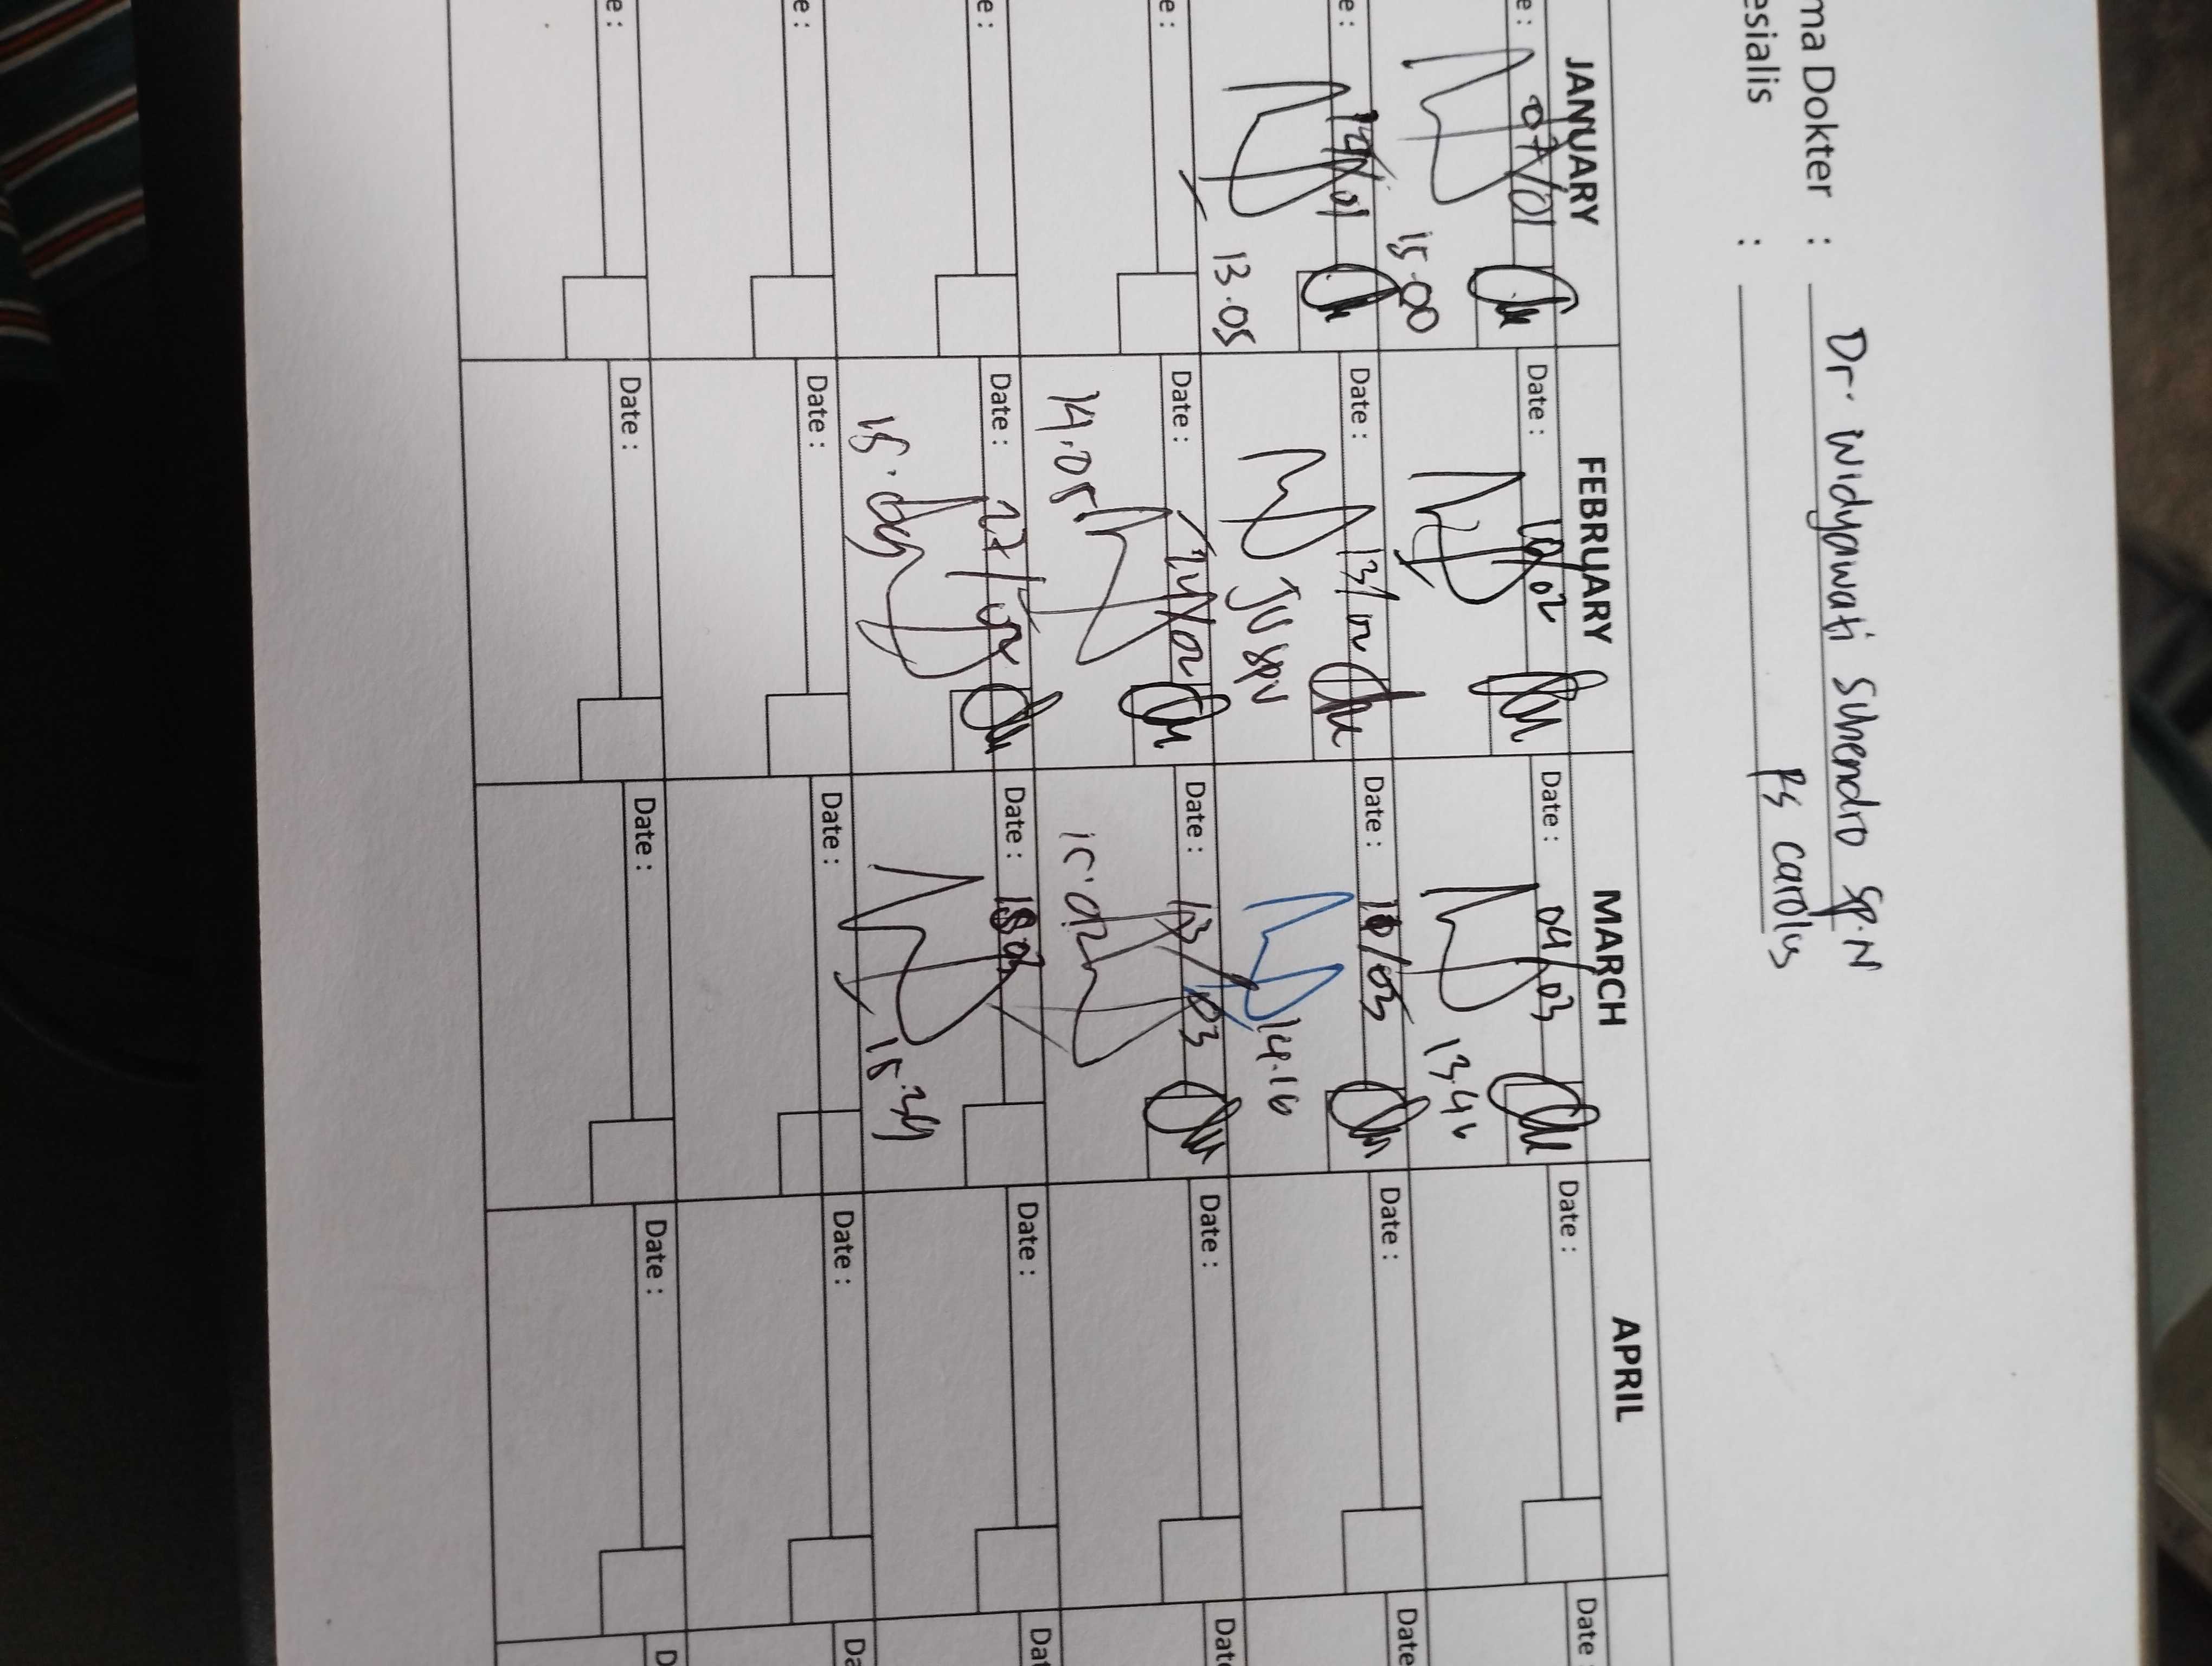 ma Dokter : Dr. Widyawati Suhendro Sp.N
esialis : RS Carolus
JANUARY FEBRUARY MARCH APRIL
e : 07/01 Date : 10/02 Date : 04/03 Date : Date :
15.00 13.46
e : 14/01 Date : 13/02 Date : 10/03 Date : Date
13.05 JV SPV 14.16
e : Date : 24/02 Date : 13/03 Date : Date
14.05
e : Date : 27/02 Date : 18/03 Date : Dat
15.39
e : Date : Date : Date : Da
e : Date : Date : Date : D